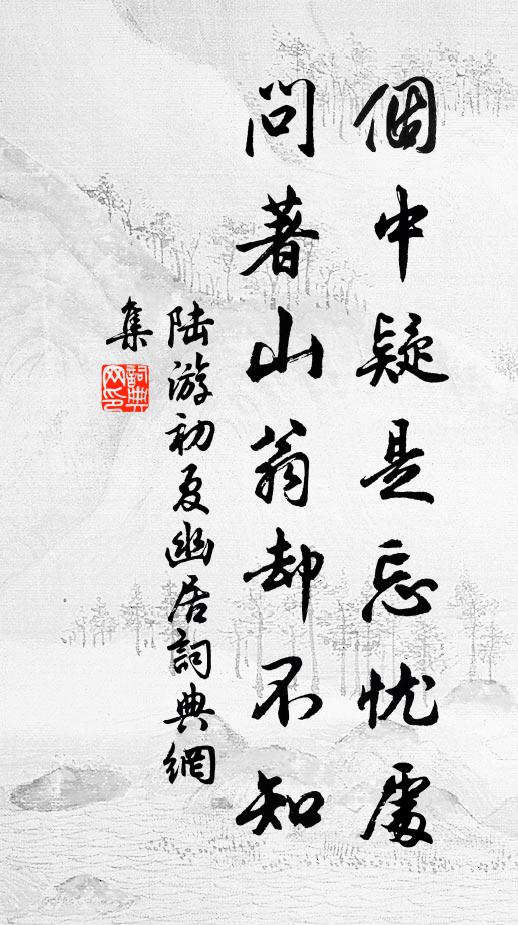 個中疑是忘忧處
問著山翁却不知
陆游初夏幽居詞典網
集
詞典網印